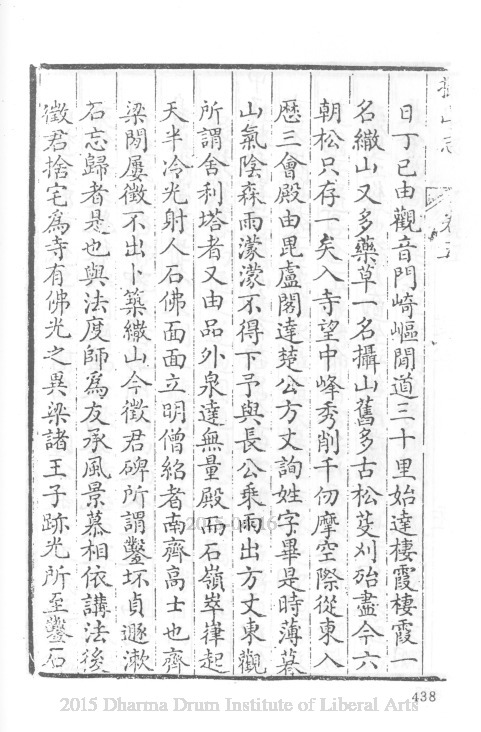 攝山志 卷五
日丁已由觀音門崎嶇閒道三十里始達棲霞棲霞一
名繖山又多藥草一名攝山舊多古松芟刈殆盡今六
朝松只存一矣入寺望中峰秀削千仞摩空際從東入
歷三會殿由毘盧閣達楚公方丈詢姓字畢是時薄暮
山氣陰森雨濛濛不得下予與長公乘雨出方丈東觀
所謂舍利塔者又由品外泉達無量殿而石嶺崒嵂起
天半冷光射人石佛面面立明僧紹者南齊高士也齊
梁閒屢徵不出卜築繖山今徵君碑所謂鑿坏貞遯漱
石忘歸者是也與法度師為友承風景慕相依講法後
徵君捨宅為寺有佛光之異梁諸王子跡光所至鑿石
438
2015 Dharma Drum Institute of Liberal Arts